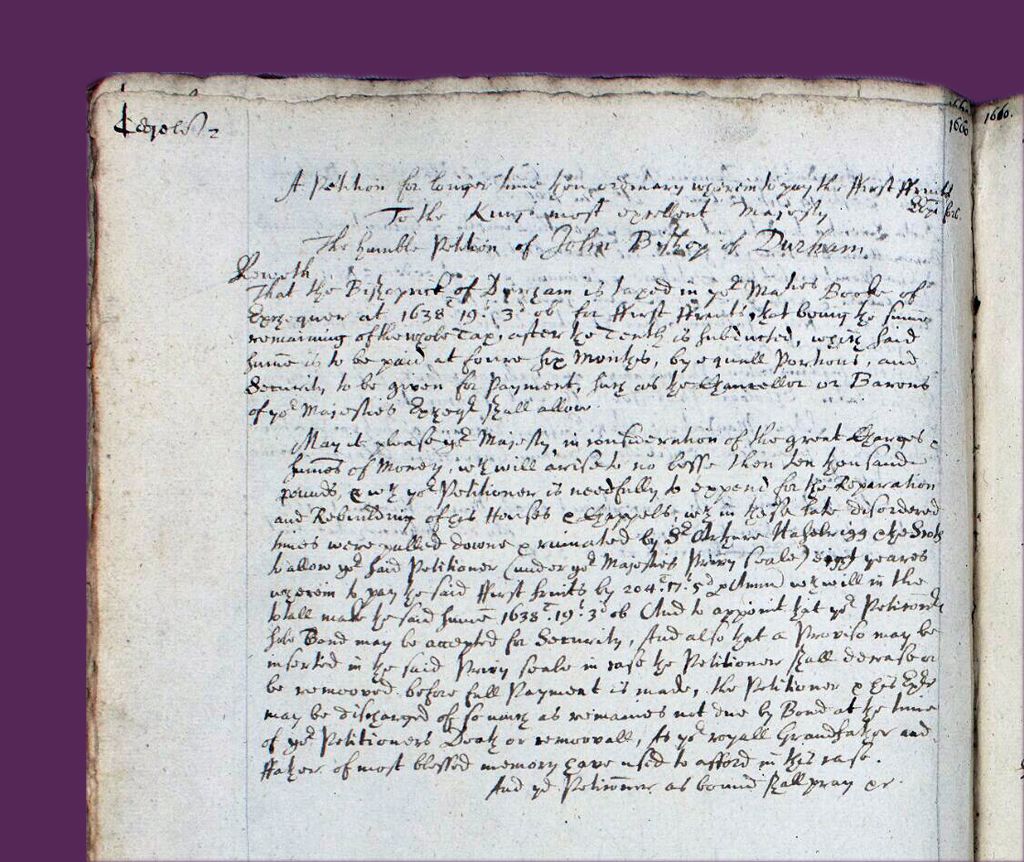 1660
1660.
A Petition for longer time then ordinary wherein to pay the ffirst ffruits
To the Kings most exellent Majesty
The humble Petition of John Bishop of Durham.
Sheweth
That the Bishoprick of Durham is taxed in yor Maties Booke of
Exchequer at 1638l. 19s. 3d ob for ffirst ffruits, that being the sume
remaining of the whole Tax, after the Tenth is subducted, which said
sume is to be paid at foure six Monthes, by equall Portions, and
Security to be given for Payment, such as the Chancellor or Barons
of yor Majesties Excheqr shall allow
May it please yor Majesty, in consideration of the great Charges &
sumes of Money, wch will arise to no lesse then ten thousand
pounds, & wch yor Petitioner is needfully to expend for the Reparation
and Rebuilding of his Houses & Chappels, wch in these late disordered
times were pulled downe & ruinated by Sr Arthure Haselrigg & the Scots
to allow yor said Petitioner (under yor Majesties Privy seale) eight yeares
wherein to pay the said ffirst fruits by 204l. 17s. 5d p Annu wch will in the
totall make the said sume 1638l. 19s. 3d ob And to appoint that yor Petitionrs
sole Bond may be accepted for Security, And also that a Proviso may be
inserted in the said Privy seale in case the Petitioner shall decease or
be remooved before full Payment is made, the Petitioner & his Exrs
may be discharged of so much as remaines not due by Bond at the time
of yor Petitioners Death or remoovall, As yor royall Grandfather and
ffather of most blessed memory have used to afford in this case.
And yor Petitioner as bound shall pray &c.